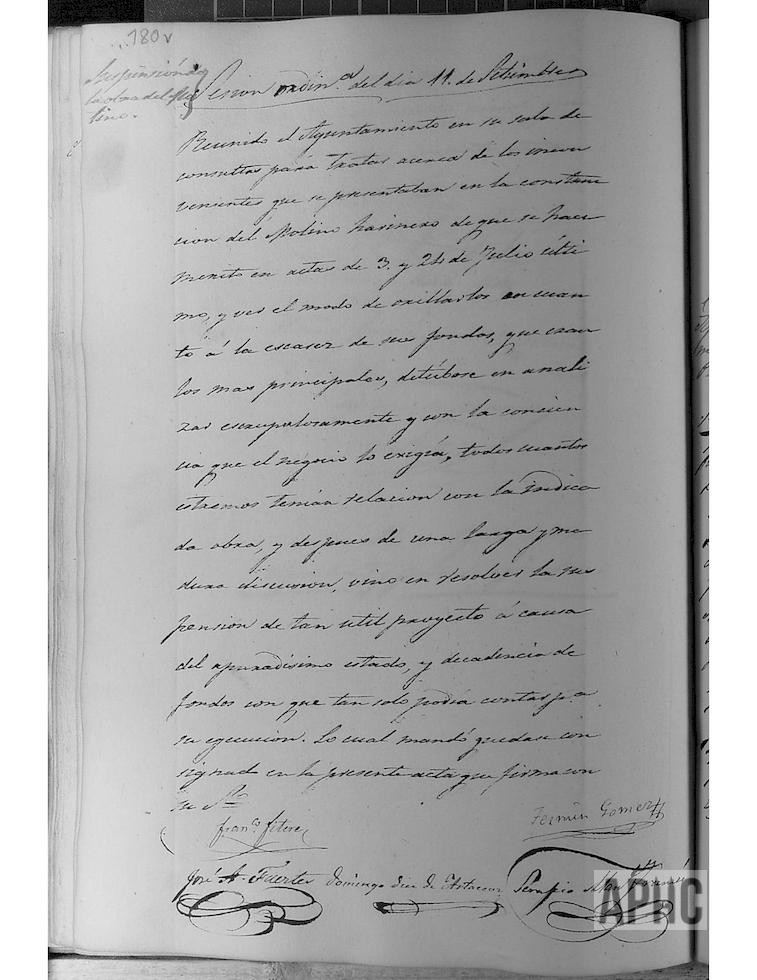 180v
Suspensión de
la obra del Mo
lino.
Sesion ordin.ª del dia 11. de Setiembre
Reunido el Ayuntamiento en su sala de
consultas para tratar acerca de los incon
venientes que se presentaban en la construc
cion del Molino harinero de que se hace
merito en actas de 3. y 24 de Julio ulti
mo, y ver el modo de orillarlos en cuan
to á la escasez de sus fondos, que eran
los mas principales, detúbose en anali
zar escrupulosamente y con la concien
cia que el negocio lo exigia, todos cuantos
estremos tenian relacion con la indica
da obra, y despues de una larga y ma
dura discusion, vino en resolver la sus
pension de tan util proyecto á causa
del apuradisimo estado, y decadencia de
fondos con que tan solo podia contar p.ª
su egecucion. Lo cual mandó quedase con
signado en la presente acta que firma con
su Sº
Fran.co Fitero
Fermin Gomez
José A. Fuertes
Domingo Diez de
Serapio
APHC